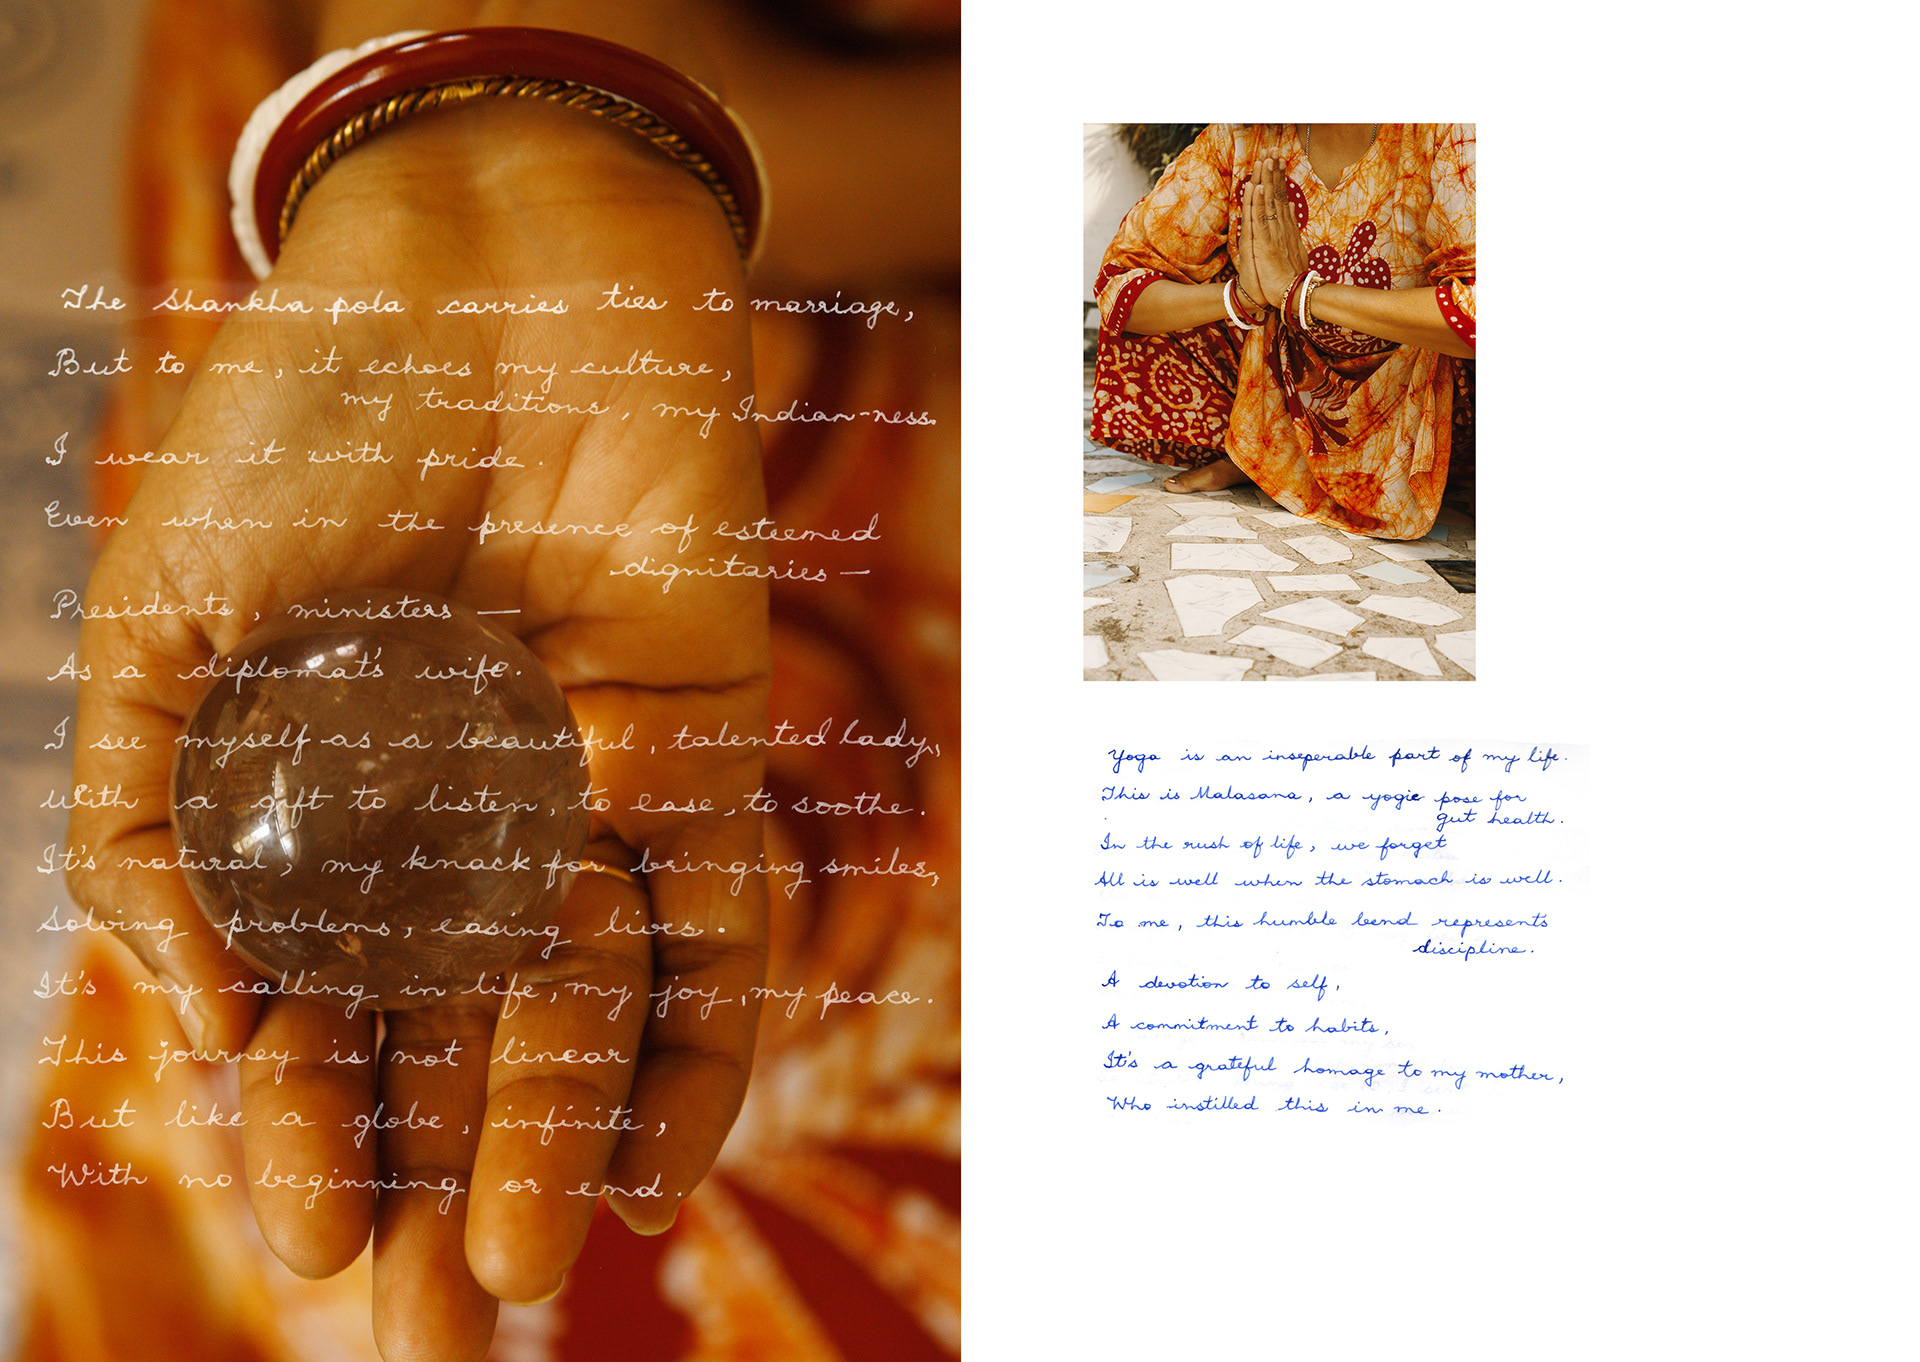 The Shankha pola carries ties to marriage,
But to me, it echoes my culture,
my traditions, my Indian-ness.
I wear it with pride.
Even when in the presence of esteemed
dignitaries —
Presidents, ministers —
As a diplomat's wife.
I see myself as a beautiful, talented lady,
With a gift to listen, to ease, to soothe.
It's natural, my knack for bringing smiles,
Solving problems, easing lives.
It's my calling in life, my joy, my peace.
This journey is not linear
But like a globe, infinite,
With no beginning or end.
Yoga is an inseperable part of my life.
This is Malasana, a yogic pose for
gut health.
In the rush of life, we forget
All is well when the stomach is well.
To me, this humble bend represents
discipline.
A devotion to self,
A commitment to habits,
It's a grateful homage to my mother,
Who instilled this in me.